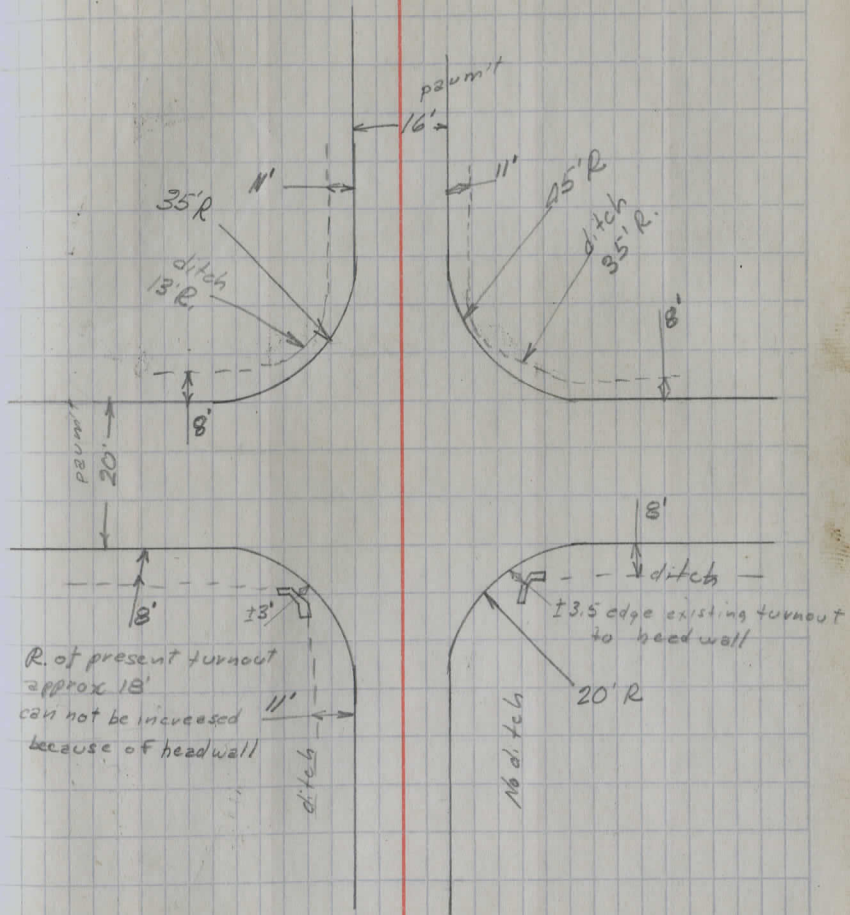 pavm't
16'
11'
11'
35'R
45'R
ditch
13'R.
ditch
35'R.
8'
8'
pavm't
20'
8'
8'
ditch
±3'
±3.5 edge existing turnout
to headwall
R. of present turnout
approx 18'
can not be increased
because of headwall
11'
20'R
ditch
No ditch